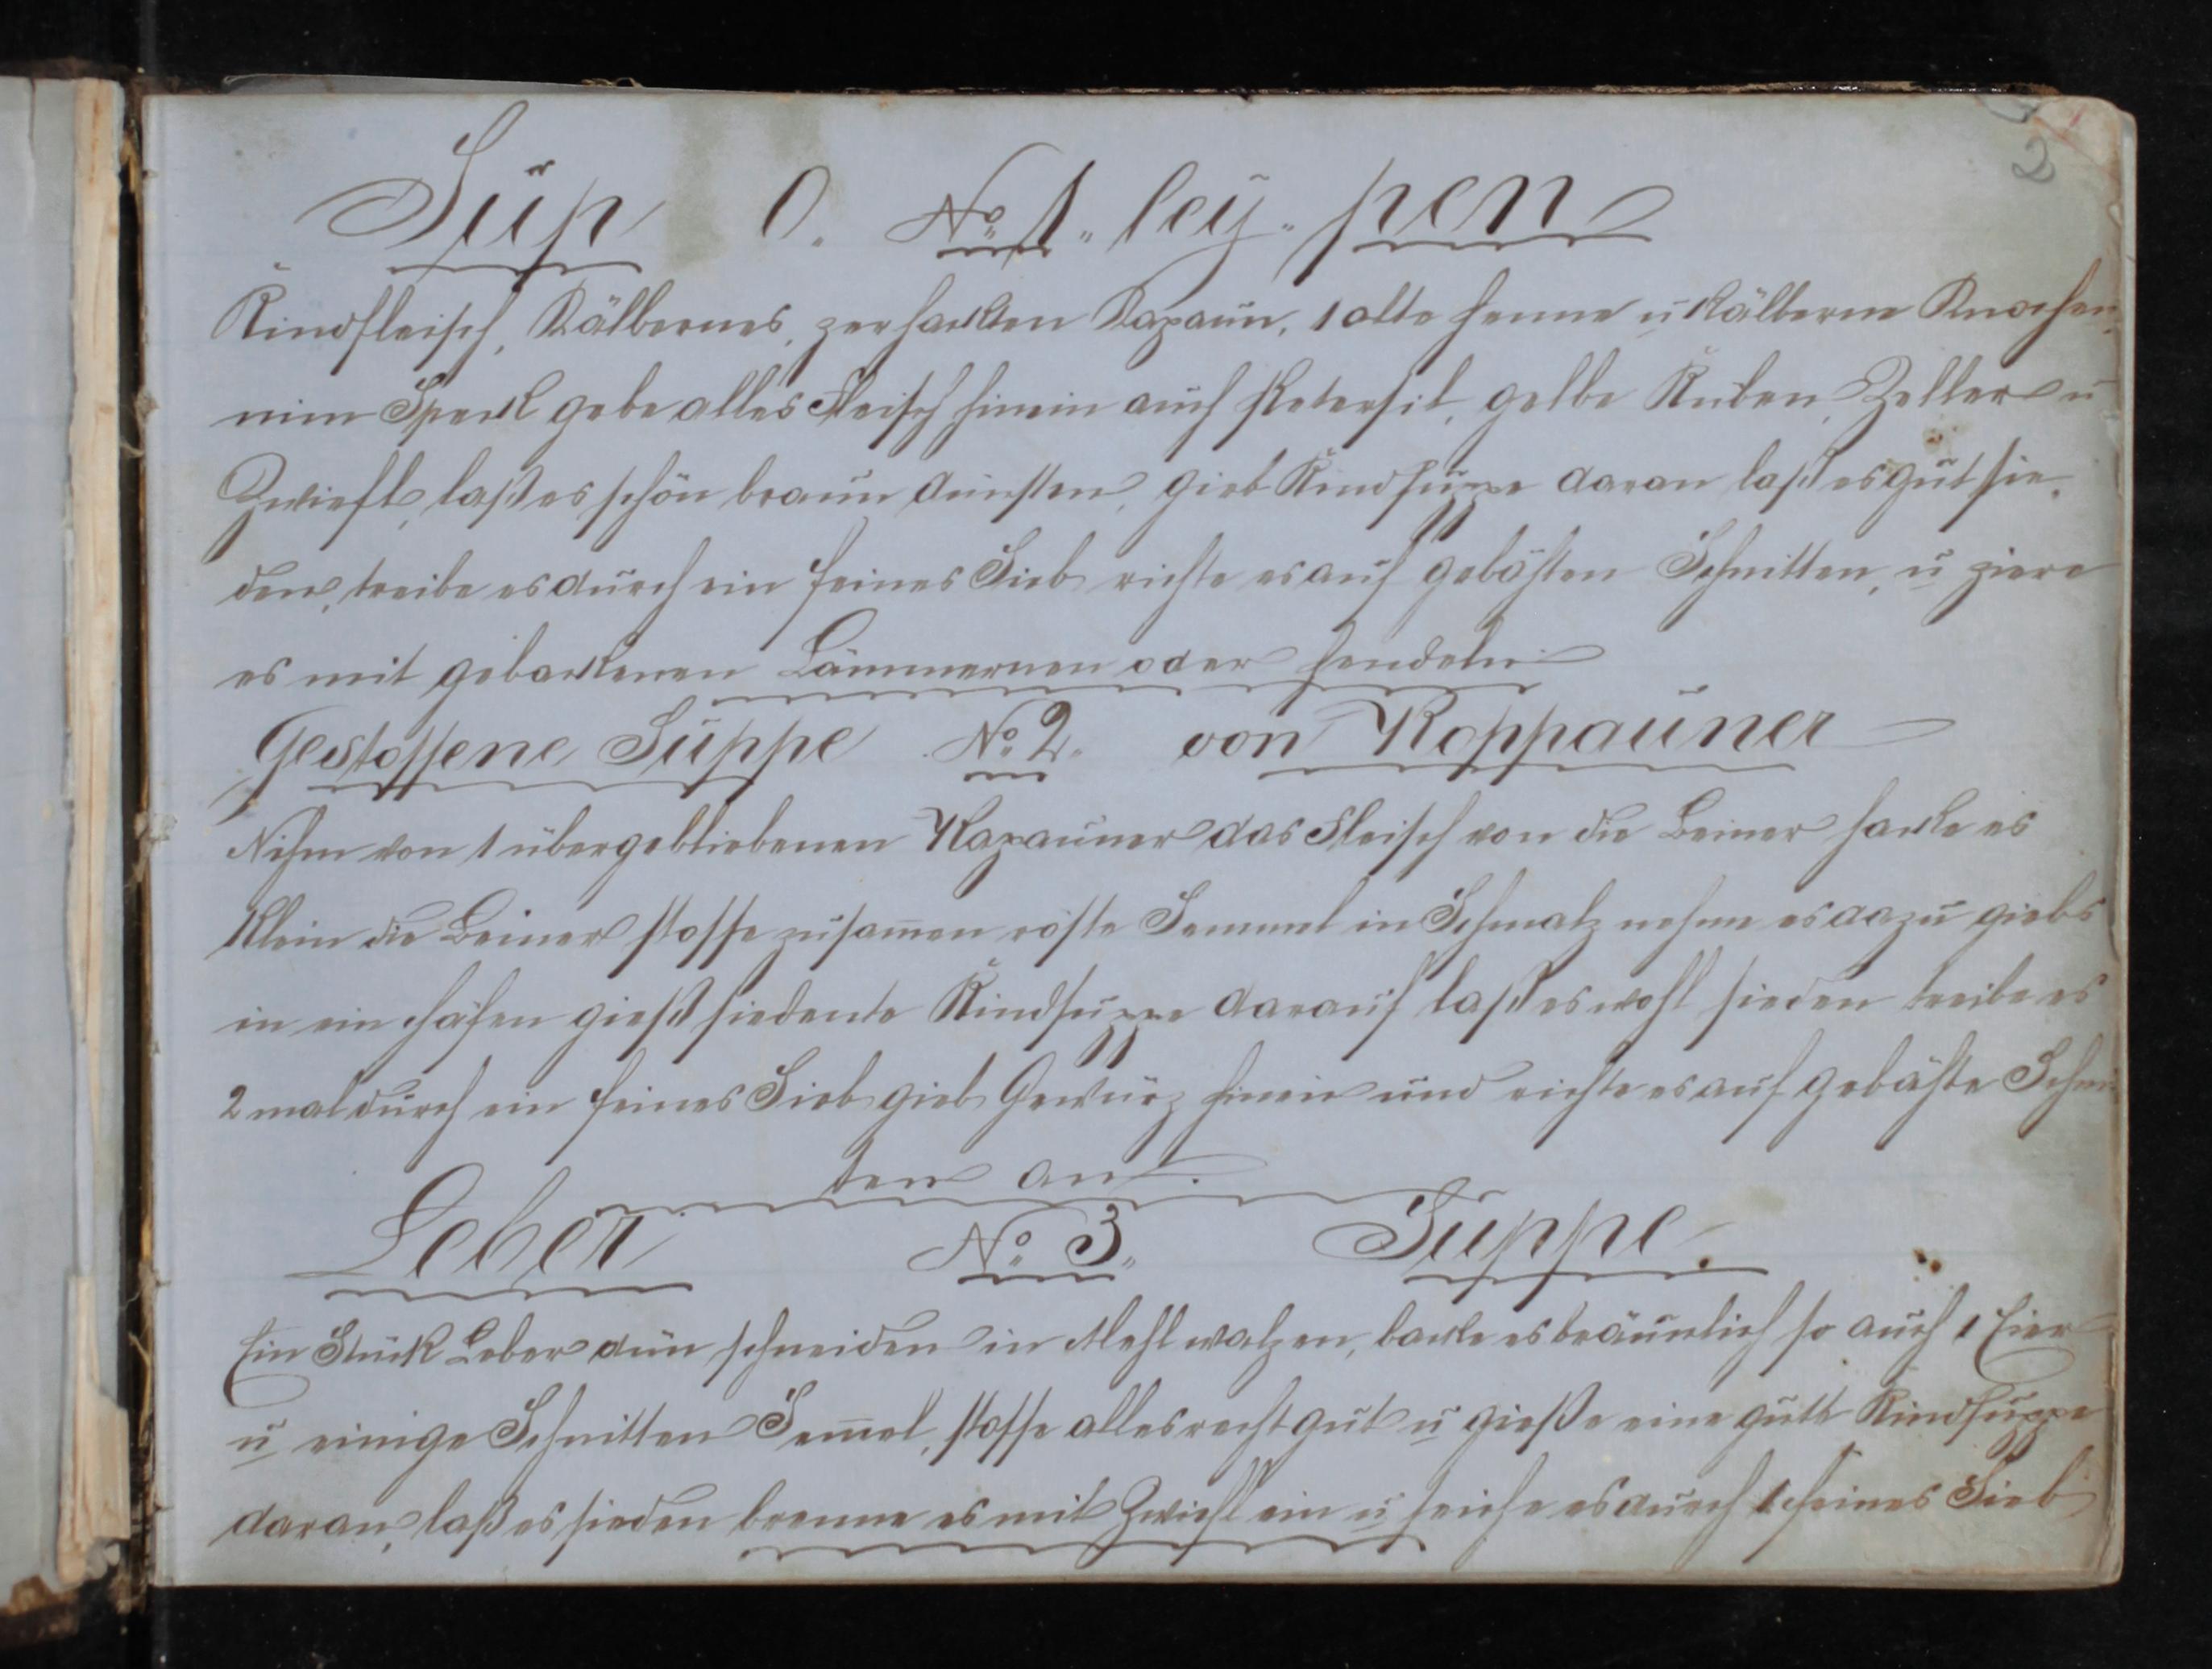 2
Süp O. No 1. ley. pen
Rindfleisch, Kälbernes, zerhackten Kapaun, 1 alte Henne u Kälberne Knochen,
nim Speckl gebe alles Fleisch hinein auch Petersil, gelbe Ruben, Zeller u
Zwiefl, laß es schön braun dünsten, gieb Rindsuppe daran laß es gut sie-
den, treibe es durch ein feines Sieb richte es auf gebähten Schnitten, u ziere
es mit gebackenen Lämmernen oder Hendeln
Gestossene Suppe No 2. von Koppauner
Nehm von 1 übergebliebenen Kapauner das Fleisch von die Beiner hacke es
klein die Beiner stosse zusam̄en röste Semmel in Schmalz nehme es dazu giebs
in ein Häfen gieß siedente Rindsuppe darauf laß es wohl sieden treibe es
2 mal durch ein feines Sieb gieb Gewürz hinein und richte es auf gebähte Schni-
ten an.
Leber No 3. Suppe.
Ein Stück Leber dün schneiden in Mehl walzen, backe es bräunlich so auch 1 Eier
u einige Schnitten Sem̄el, stosse alles recht gut u gieße eine gute Rindsuppe
daran, laß es sieden brenne es mit Zwiefl ein u seiche es durch 1 feines Sieb